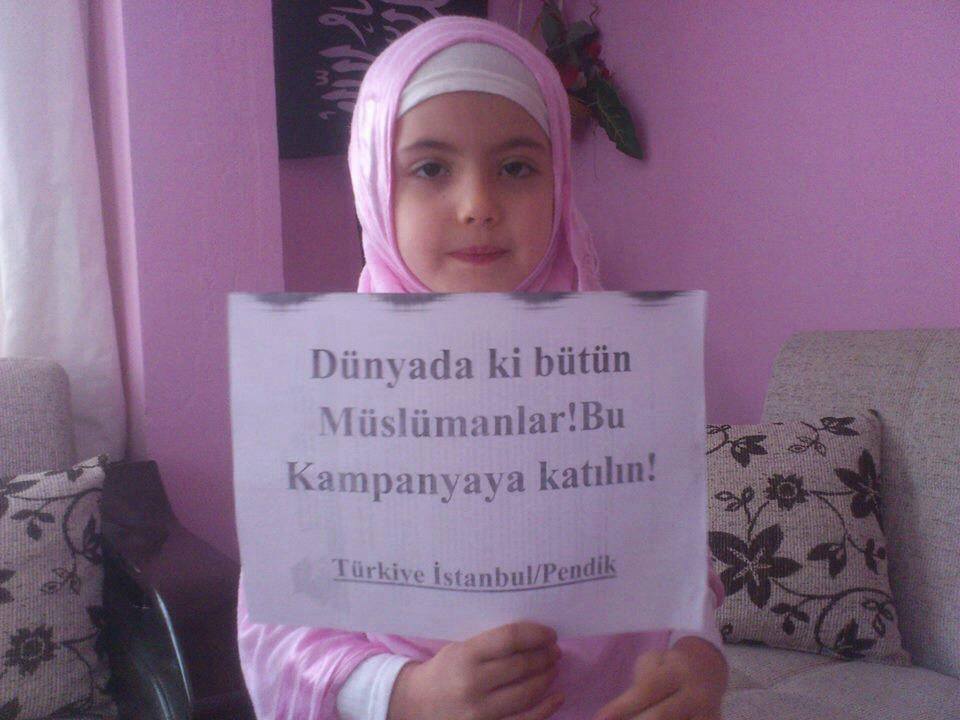 Dünyada ki bütün
Müslümanlar!Bu
Kampanyaya katılın!
Türkiye İstanbul/Pendik